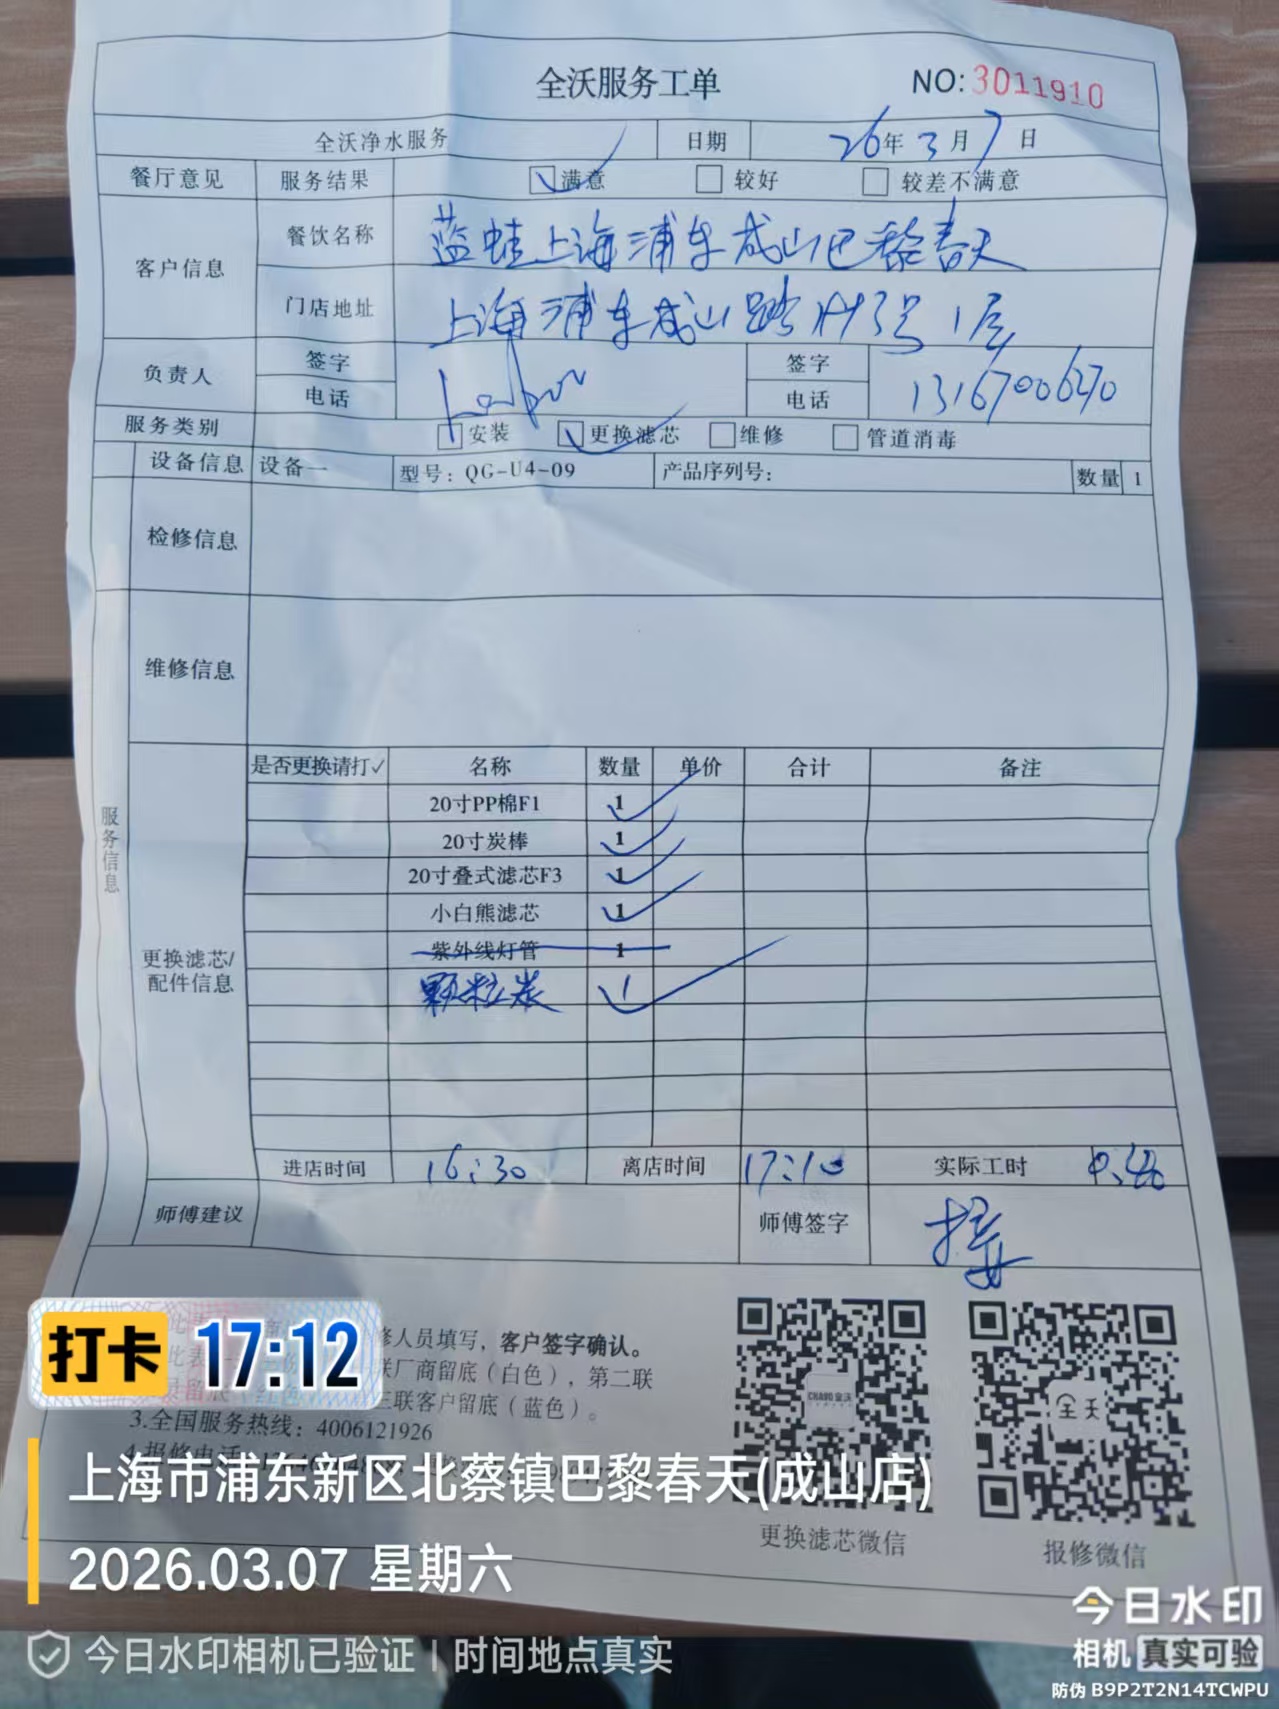 全沃服务工单 NO:3011910
全沃净水服务 日期 26年3月7日
餐厅意见 服务结果 满意 较好 较差不满意
客户信息 餐饮名称 蓝蛙上海浦东成山巴黎春天
门店地址 上海浦东成山路 号1层
负责人 签字 签字
电话 电话 13167006270
服务类别 安装 更换滤芯 维修 管道消毒
设备信息 设备一 型号：QG-U4-09 产品序列号： 数量 1
检修信息
维修信息
服务信息
是否更换请打✓ 名称 数量 单价 合计 备注
20寸PP棉F1 1
20寸炭棒 1
20寸叠式滤芯F3 1
小白熊滤芯 1
紫外线灯管 1
更换滤芯/
配件信息
颗粒炭 1
进店时间 16:30 离店时间 17:10 实际工时 0:40
师傅建议 师傅签字
修人员填写，客户签字确认。
联厂商留底（白色），第二联
三联客户留底（蓝色）。
3.全国服务热线：4006121926
4.报修电话
更换滤芯微信
报修微信
全天
打卡 17:12
上海市浦东新区北蔡镇巴黎春天(成山店)
2026.03.07 星期六
今日水印相机已验证 | 时间地点真实
今日水印
相机 真实可验
防伪 B9P2T2N14TCWPU